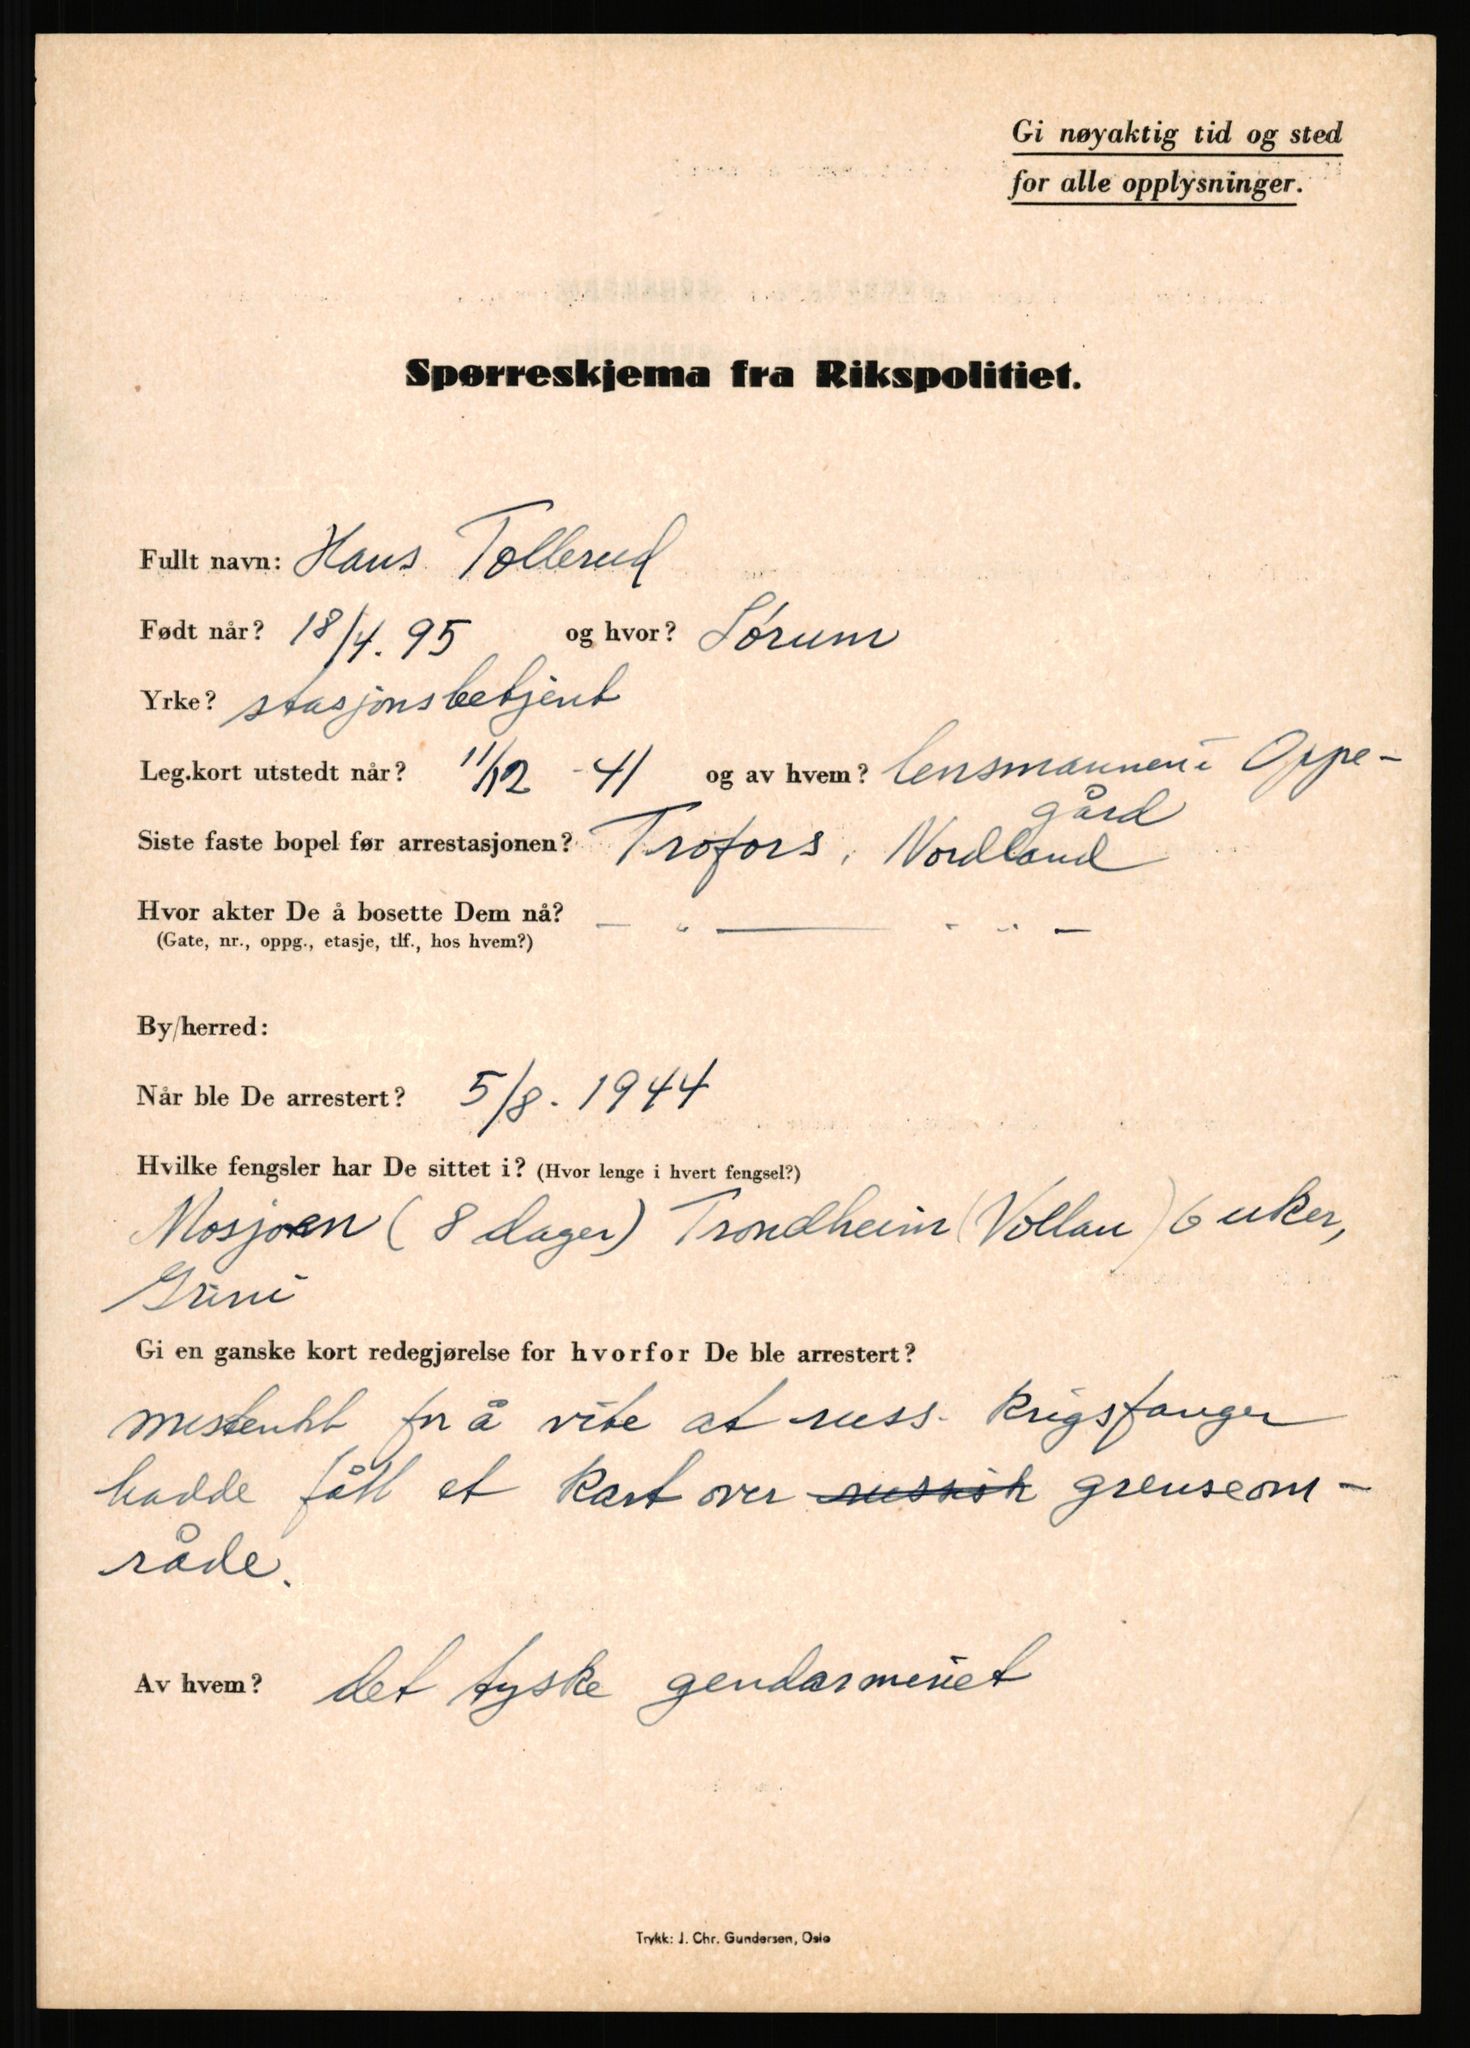 Gi nøyaktig tid og sted
for alle opplysninger.
Spørreskjema fra Rikspolitiet.
Fullt navn: Hans Tollerud
Født når? 18/4. 95 og hvor? Sørum
Yrke? stasjonsbetjent
Leg.kort utstedt når? 11/12 - 41 og av hvem? lensmannen i Oppe-
gård
Siste faste bopel før arrestasjonen? Trofors, Nordland
Hvor akter De å bosette Dem nå? — " — - " —
(Gate, nr., oppg., etasje, tlf., hos hvem?)
By/herred:
Når ble De arrestert? 5/8. 1944
Hvilke fengsler har De sittet i? (Hvor lenge i hvert fengsel?)
Mosjøen (8 dager) Trondheim (Vollan) 6 uker,
Grini
Gi en ganske kort redegjørelse for hvorfor De ble arrestert?
mistenkt for å vite at russ. krigsfanger
hadde fått et kart over russisk grenseom-
råde.
Av hvem? det tyske gendarmeriet
Trykk: J. Chr. Gundersen, Oslo